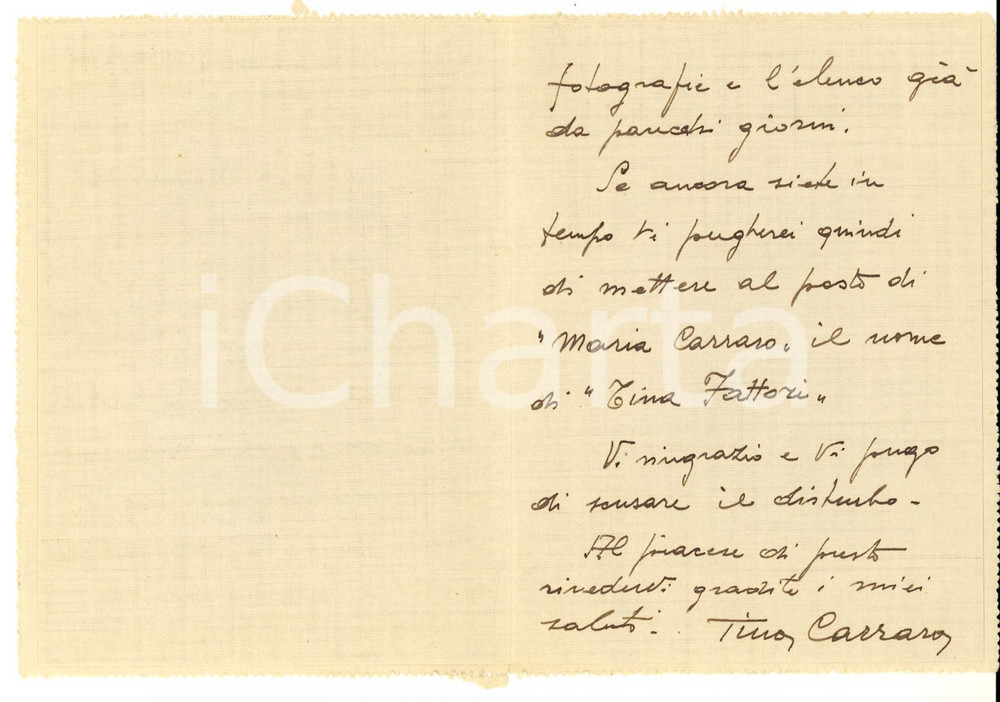 fotografie e l'elenco già
da parecchi giorni.
Se ancora siete in
tempo Vi pregherei quindi
di mettere al posto di
"Maria Carraro" il nome
di "Tina Fattori"
Vi ringrazio e Vi prego
di scusare il disturbo -
Al piacere di presto
rivedervi gradite i miei
saluti. Tino Carraro
iCharta